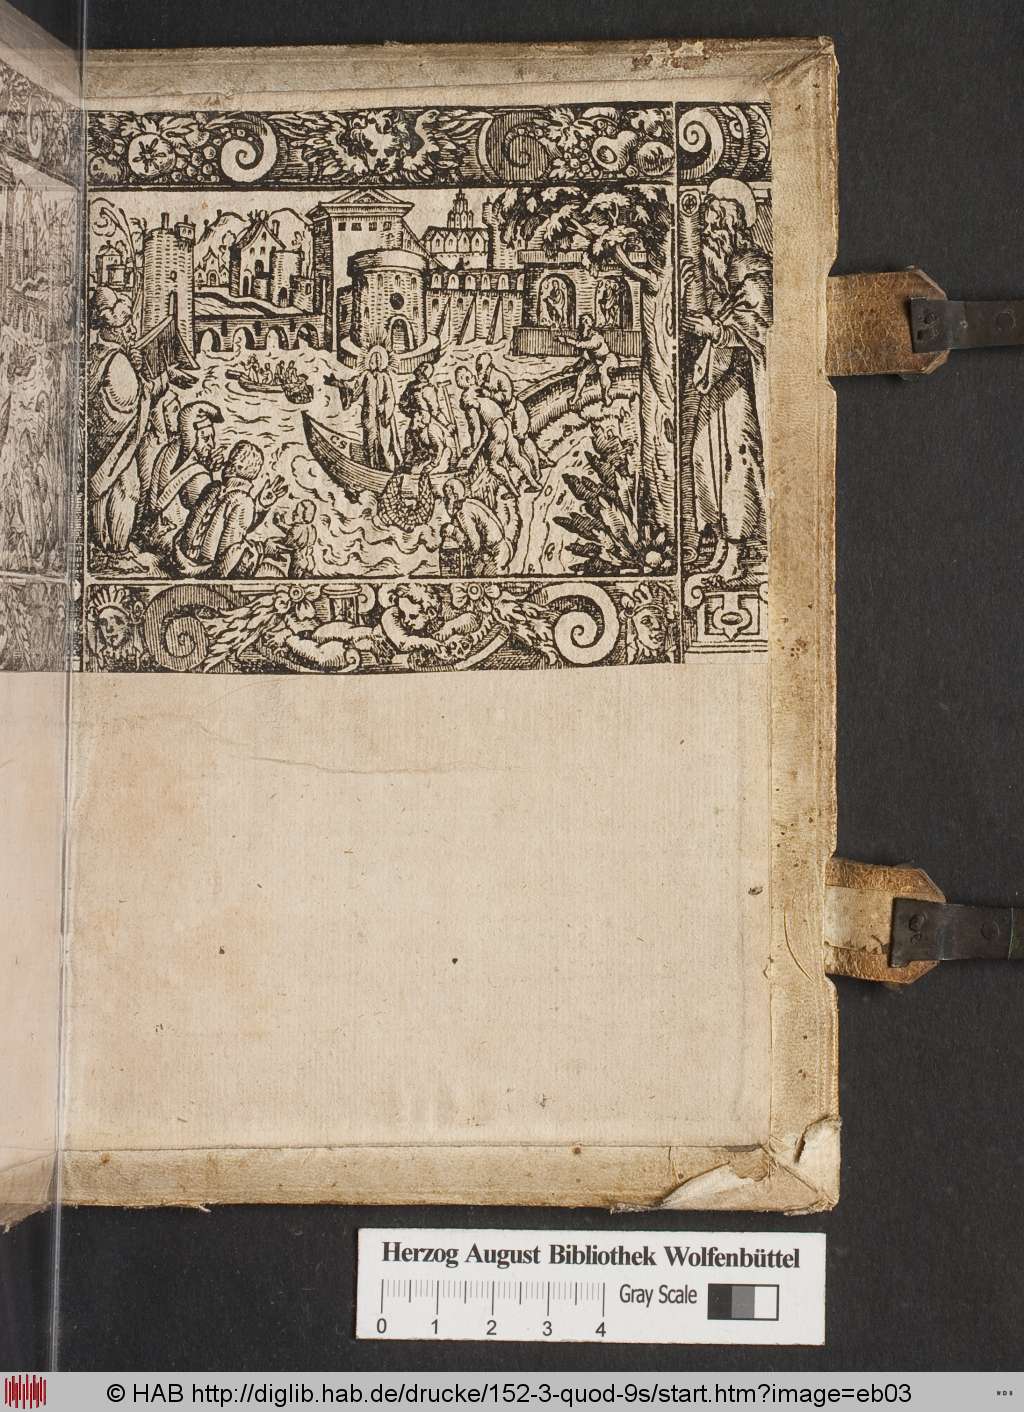 Herzog August Bibliothek Wolfenbüttel
Gray Scale
0 1 2 3 4
© HAB http://diglib.hab.de/drucke/152-3-quod-9s/start.htm?image=eb03
WDB